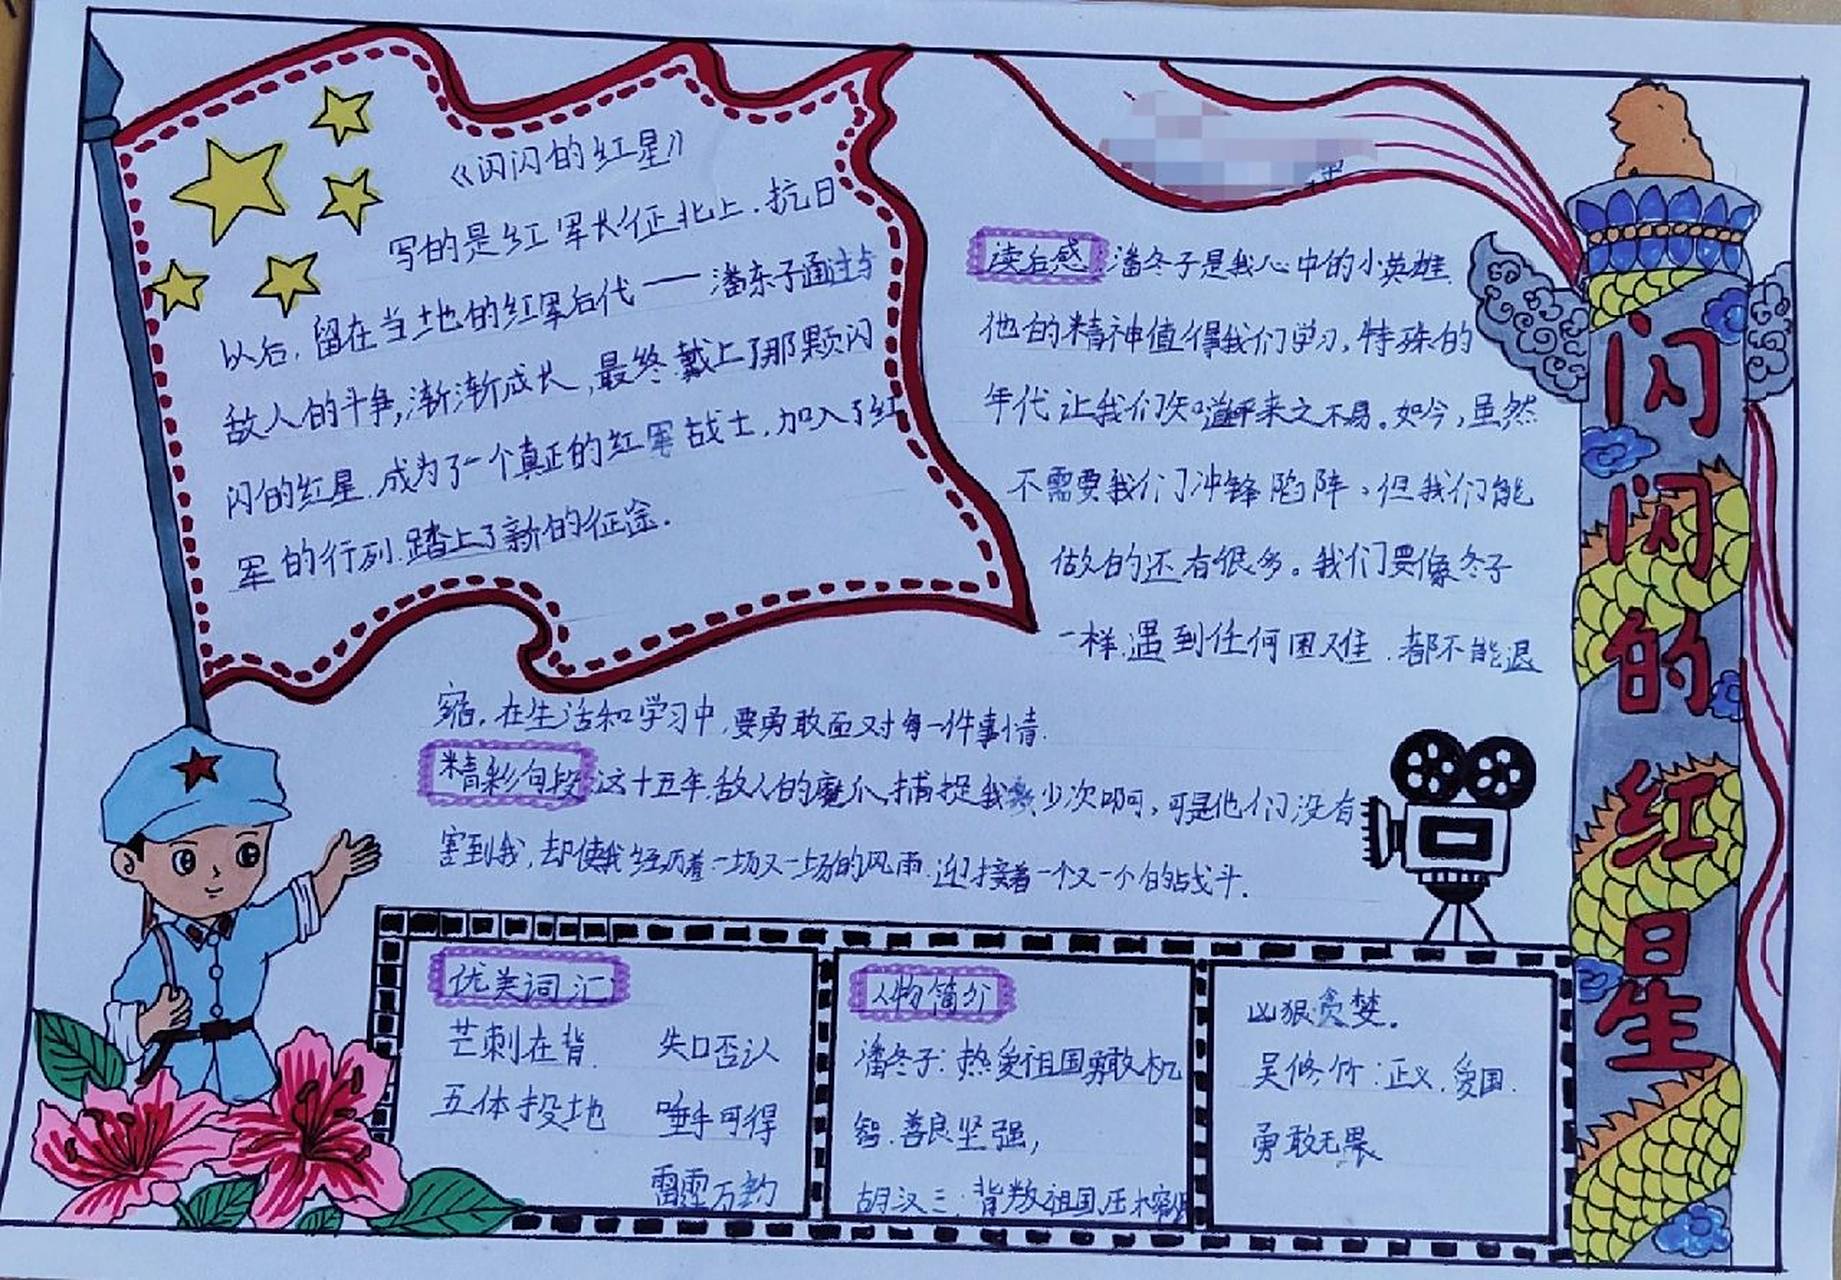 《闪闪的红星》
写的是红军长征北上.抗日
以后,留在当地的红军后代——潘东子通过与
敌人的斗争,渐渐成长,最终戴上了那颗闪
闪的红星.成为了一个真正的红军战士.加入了红
军的行列.踏上了新的征途.
读后感:潘冬子是我心中的小英雄.
他的精神值得我们学习,特殊的
年代让我们知道来之不易。如今,虽然
不需要我们冲锋陷阵,但我们能
做的还有很多。我们要像冬子
一样.遇到任何困难.都不能退
缩.在生活和学习中,要勇敢面对每一件事情.
精彩句段:这十五年.敌人的魔爪捕捉我多少次啊,可是他们没有
害到我,却使我经历着一场又一场的风雨.迎接着一个又一个的战斗.
优美词汇
芒刺在背. 失口否认
五体投地 唾手可得
雷霆万钧
人物简介
潘冬子:热爱祖国勇敢机
智.善良坚强,
胡汉三:背叛祖国.压榨
凶狠贪婪。
吴修竹:正义.爱国.
勇敢无畏
闪闪的红星